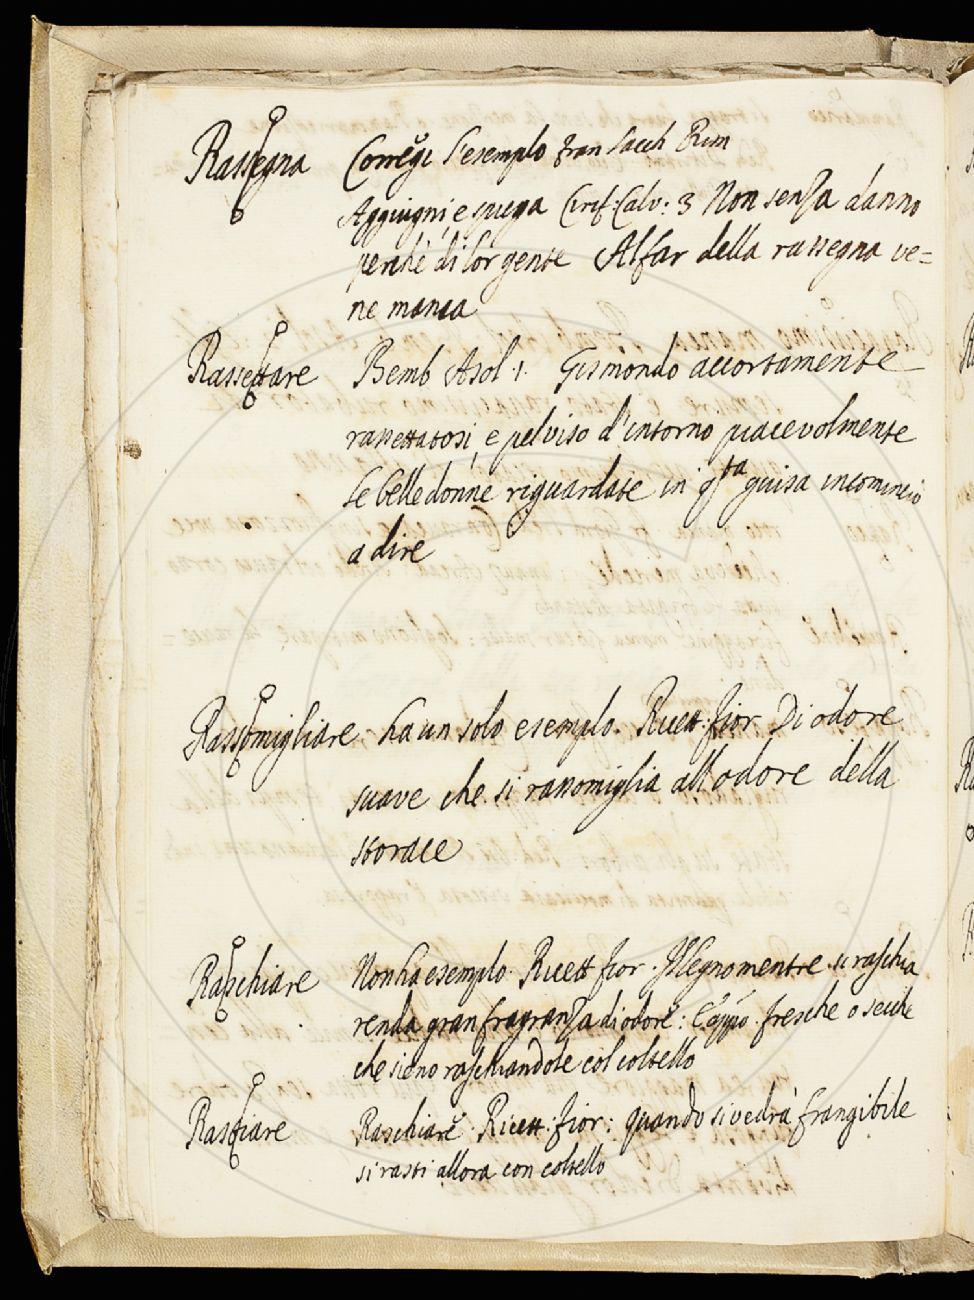 Rassegna Correggi l'esempio Fran Sacch Rim
Aggiugni, e spiega Cirif. Calv: 3 Non senza danno
perchè di lor gente Al far della rassegna ve=
ne manca
Rassettare Bemb Asol. 1. Gismondo accortamente
rassettatosi, e pel viso d'intorno piacevolmente
le belle donne riguardate in qta guisa incominciò
a dire
Rassomigliare ha un solo esempio. Ricett: fior Di odore
suave che si rassomiglia all odore della
storace
Raschiare Non ha esempio. Ricett fior. Il legno mentre si raschia
renda gran fragranza di odore: fresche o secche
che sieno raschiandole col coltello
Rastiare Raschiare. Ricett: fior: quando si vedrà frangibile
si rasti allora con coltello